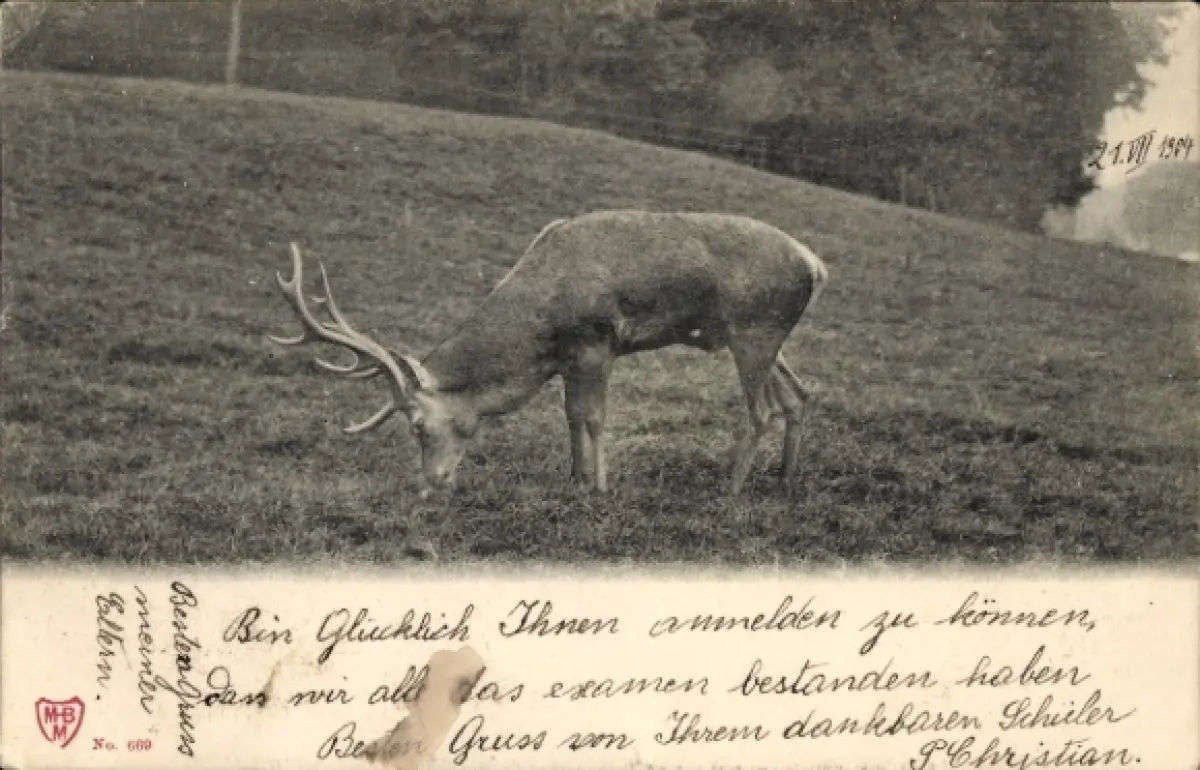 21.VII 1904
Bin Glücklich Ihnen anmelden zu können,
dan wir alle das examen bestanden haben
Besten Gruss von Ihrem dankbaren Schüler
P Christian.
Besten Gruss
meiner
Eltern.
MHBM
No. 669